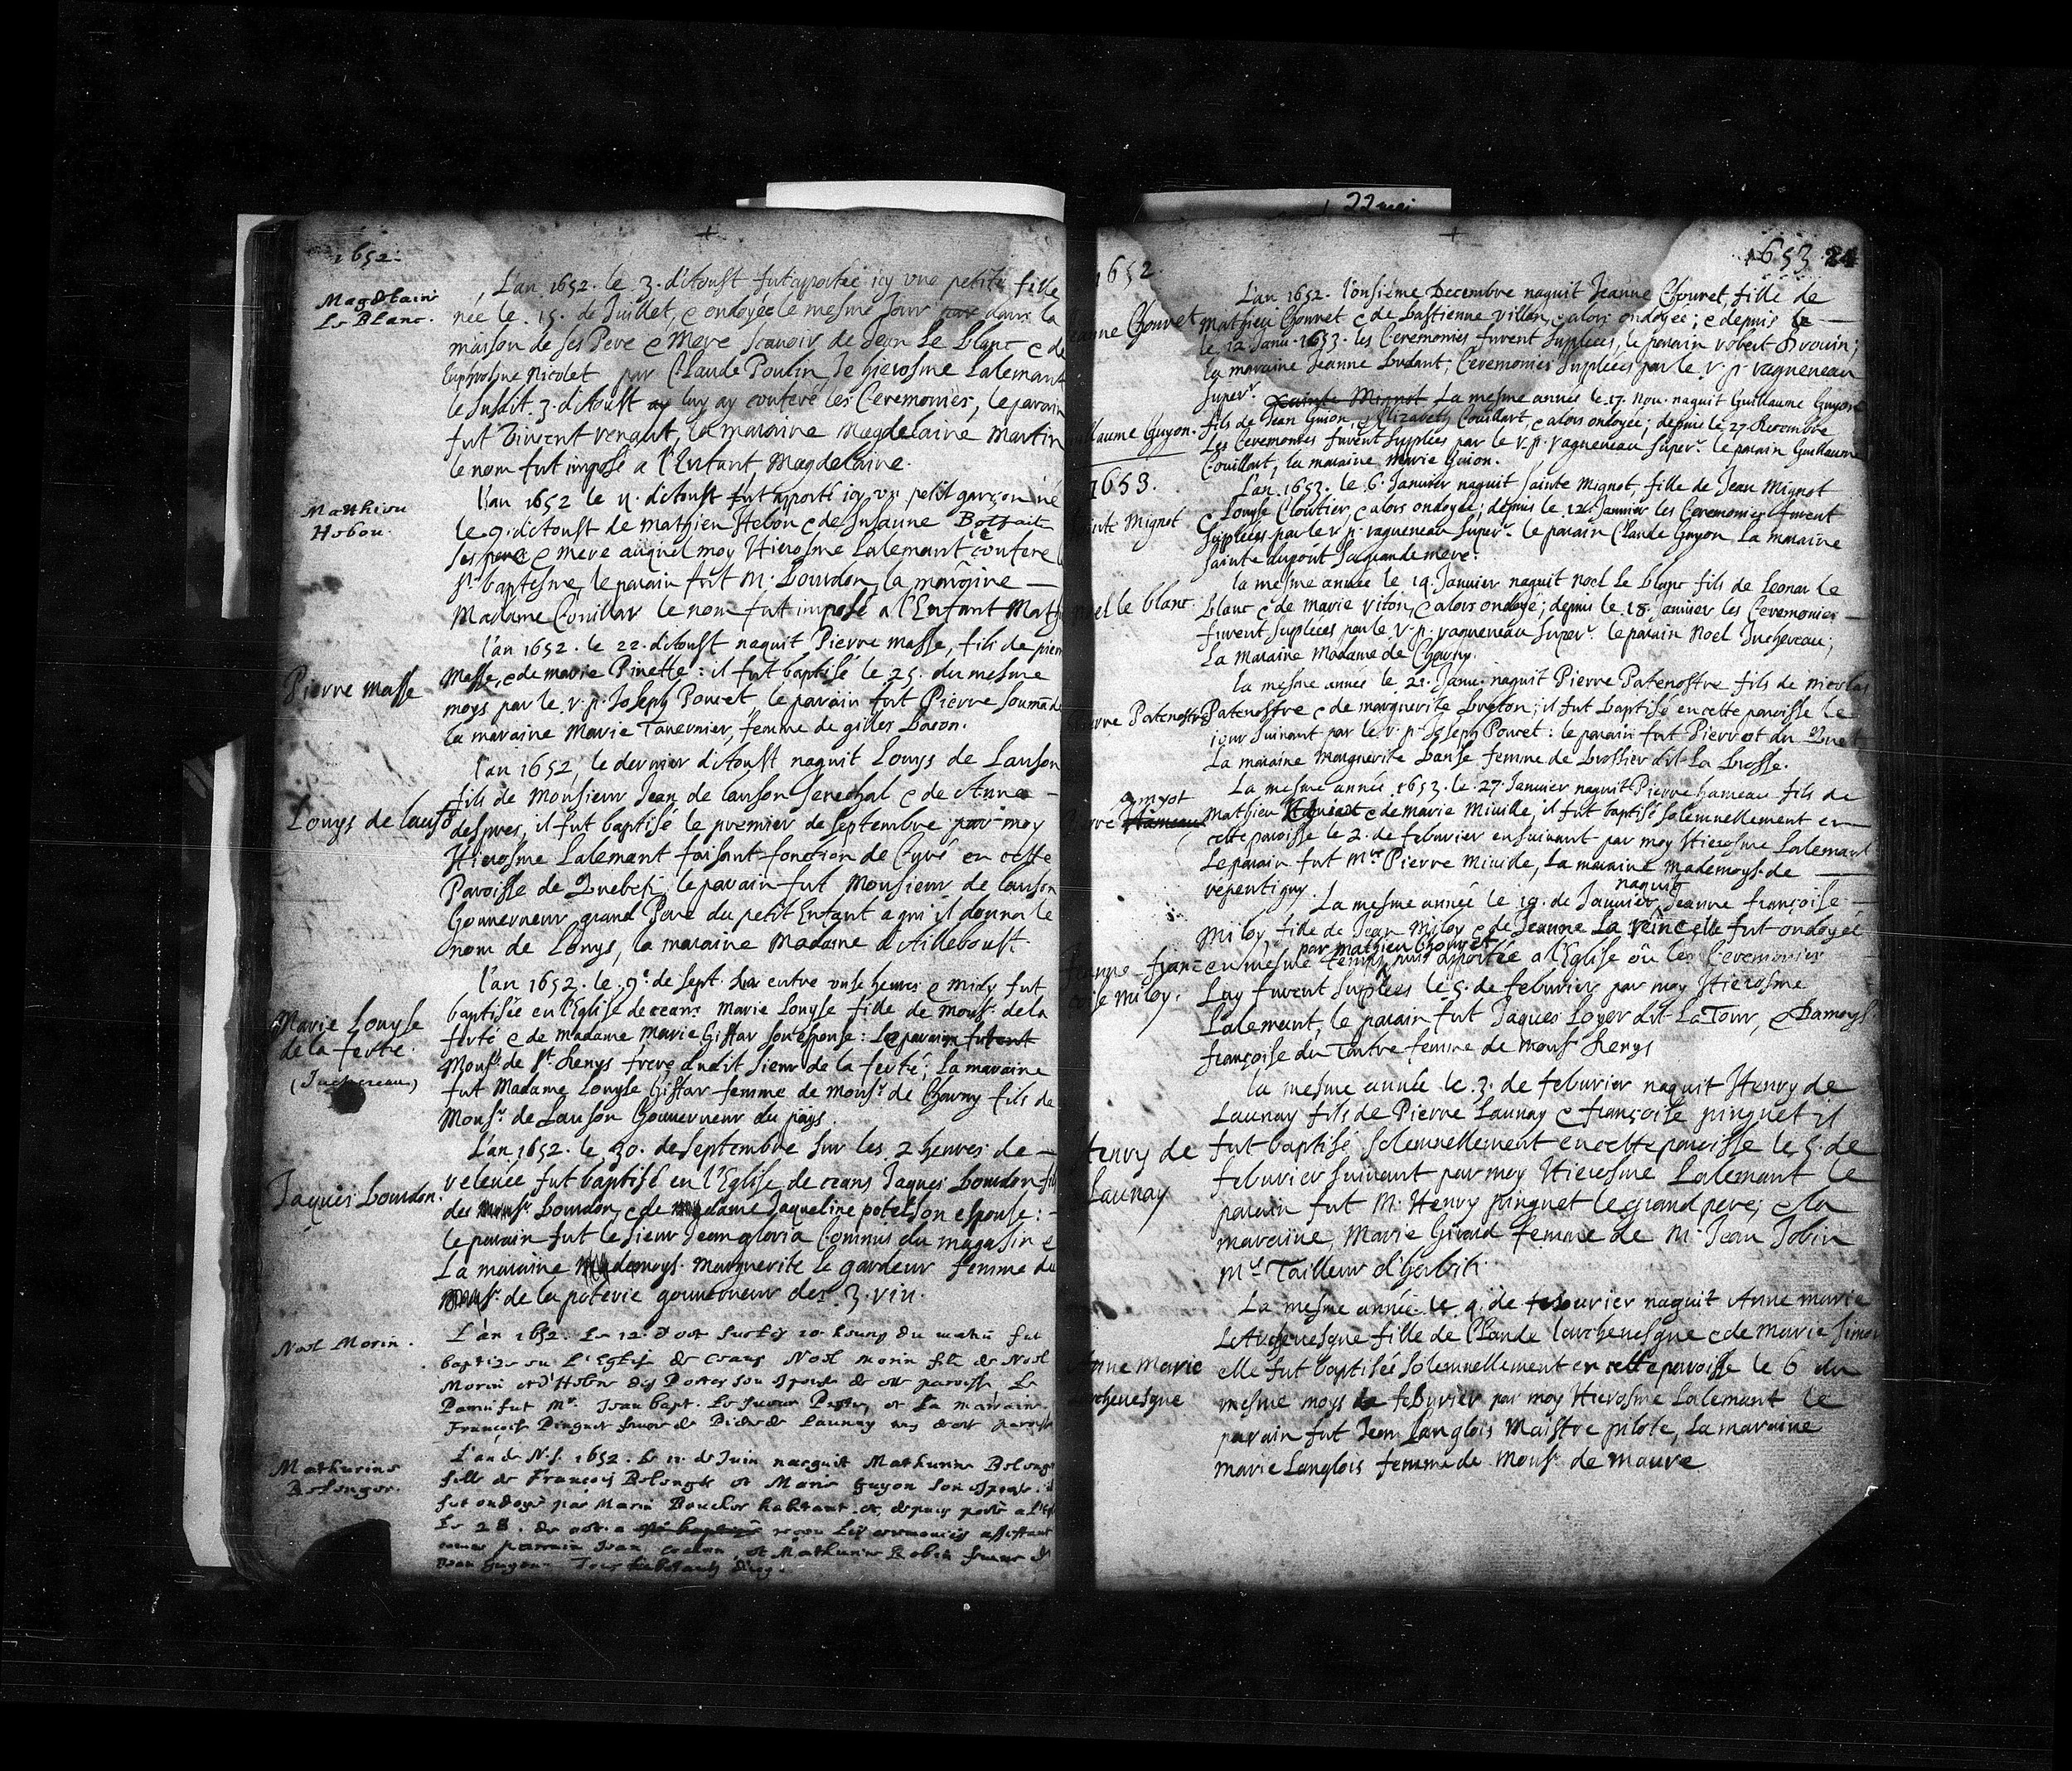 22 mai
1652.
Magdelaine
Le Blanc.
L'an 1652. le 3. d'Aoust fut aportée icy une petite fille
née le 15. de Juillet, & ondoyée le mesme Jour dans la
maison de ses Pere & Mere scavoir de Jean Le blanc & de
Euphrosine Nicolet par Claude Poulin Je hierosme Lalemant
le susdit 3. d'Aoust luy ay conferé les Ceremonies, le parain
fut Vincent renaut, la maraine Magdelaine Martin
le nom fut imposé a l'Enfant Magdelaine.
Matthieu
Hebou.
L'an 1652 le 11. d'Aoust fut apporté icy un petit garçon né
le 9. d'Aoust de Mathieu Hebou & de Susanne Betfait
ses pere & mere auquel moy Hierosme Lalemant confere
st baptesme, le parain fut M. Bourdon, la maraine
Madame Couillar le nom fut imposé a l'Enfant Math
Pierre Masse
l'an 1652. le 22. d'Aoust naquit Pierre Masse, fils de pierre
Masse, & de marie Pinette: il fut baptisé le 25. du mesme
moys par le r. p. Joseph Poncet, le parain fut Pierre Soumande
la maraine Marie Tavernier, femme de gilles Bacon.
Louys de lauson
l'an 1652, le dernier d'Aoust naquit Louys de Lauson
fils de Monsieur Jean de lauson senechal & de Anne
despres, il fut baptisé le premier de septembre par moy
Hierosme Lalemant faisant fonction de Curé en cette
Paroisse de Quebek, le parain fut Monsieur de lauson
Gouverneur grand Pere du petit Enfant a qui il donna le
nom de Louys, la maraine Madame d'Ailleboust.
Marie Louyse
de la ferté.
(Juchereau)
l'an 1652. le 9e de sept. entre onse heures & midy fut
baptisée en l'Eglise de ceans Marie Louyse fille de Monsr de la
ferté & de Madame Marie Giffar son espouse: Le parain fut
Monsr de St. Denys frere dudit sieur de la ferté; la maraine
fut Madame Louyse Giffar femme de Monsr de Charny fils de
Monsr de Lauson Gouverneur du païs.
Jaques bourdon.
L'an 1652. le 30. de septembre sur les 2 heures de
relevée fut baptisé en l'Eglise de ceans Jaques bourdon fils
de Monsr bourdon, & de madame Jaqueline potel son espouse:
le parain fut le sieur Jean gloria Commis du magasin &
La maraine Mademoys. Marguerite le gardeur femme de
Monsr. de la poterie gouverneur des 3. riv.
Noel Morin.
L'an 1652. Le 12. d'oct sur les 10 heures du matin fut
baptizé en l'Eglise de ceans Noel morin fils de Noel
Morin et d'Helene des Portes son espouse de cette paroisse. Le
Parrin fut Mr. Jean bapt. Le sueur Prestre, et La marraine
Françoise Pinguet femme de Pierre de Launay de cette paroisse
Mathurine
Belanger.
L'an de N.S. 1652. Le 11. de Juin nacquit Mathurine Belange
fille de François Belanger et Marie Guyon son espouse
fut ondoyé par Marin Boucher habitant. et depuis porté a l'Eg
Le 28. de oct. a esté baptizé receu les ceremonies assistant
comme parrain Jean cochon, et Mathurine Robin femme de
Jean Guyon. Tous habitants d'icy.
1653. 24
1652.
Jeanne Chouret
L'an 1652. l'onsième Decembre naquit Jeanne Chouret, fille de
Mathieu Chouret & de bastienne Villan, & alors ondoyée; & depuis le
le 12 Janu. 1653. les Ceremonies furent suplées, le parain robert Drouin;
la maraine Jeanne budant; Ceremonies suplées par le r. p. ragueneau
superr.
Guillaume Guyon.
Sainte Mignot La mesme année le 17. Nou. naquit Guillaume Guyon
fils de Jean Guion, & Elizabeth Couillart, & alors ondoyé; depuis le 27 Decembre
Les Ceremonies furent suplées par le r. p. ragueneau superr. le parain Guillaume
Couillart, la maraine Marie Guion.
1653.
Sainte Mignot
L'an 1653. le 6. Janvier naquit Sainte Mignot, fille de Jean Mignot
& Louyse Cloutier, & alors ondoyée; depuis le 12. Janvier les Ceremonies furent
suplées par le r. p. ragueneau superr. le parain Claude Guyon la maraine
Sainte dupont sa grande mere.
noel le blanc.
la mesme année le 14. Janvier naquit noel Le blanc fils de Leonar le
blanc & de marie riton, & alors ondoyé; depuis le 18. Janvier les Ceremonies
furent suplées par le r. p. ragueneau superr. le parain Noel Juchereau;
la Maraine Madame de Charny.
Pierre Patenostre
la mesme année le 21. Janu. naquit Pierre Patenostre fils de nicolas
Patenostre & de marguerite breton; il fut baptisé en cette paroisse le
jour suivant par le r. p. Joseph Poncet: le parain fut Pierrot du Quet
La maraine Marguerite banse femme de brossier dit La brosse.
Amyot
Pierre Hameau
La mesme année 1653. le 27. Janvier naquit Pierre hameau fils de
Mathieu & de marie Miville, il fut baptisé solemnellement en
cette paroisse le 2. de februrier ensuivant par moy Hierosme Lalemant
Le parain fut Mre Pierre Miville, la maraine Mademoys. de
repentigny.
Jeanne-fran
çoise Miloy.
La mesme année le 19. de Janvier naquit Jeanne françoise
Miloy fille de Jean Miloy & de Jeanne La reine elle fut ondoyée
en mesme temps par Mathieu Chouret puis apportée a l'Eglise où les Ceremonies
Luy furent suplées le 5. de februrier par moy Hierosme
Lalemant, le parain fut Jaques Loyer dit La Tour, & Damoys.
françoise du Tartre femme de Monsr Denys
Henry de
Launay
la mesme année le 3. de februrier naquit Henry de
Launay fils de Pierre Launay & françoise pinguet il
fut baptisé solemnellement en cette paroisse le 5. de
februrier suivant par moy Hierosme Lalemant le
parain fut M. Henry pinguet le grand pere, & la
maraine, Marie Giraud femme de M. Jean Jobin
Mre Tailleur d'habits.
Anne Marie
archevesque
La mesme année le 4. de februrier naquit Anne marie
L'Archevesque fille de Claude larchevesque & de Marie Simon
elle fut baptisée solemnellement en cette paroisse le 6 du
mesme moys de februrier par moy Hierosme Lalemant le
parain fut Jean Langlois Maistre pilote, la maraine
Marie Langlois femme de Monsr. de maure